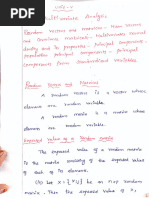 UNIT - V
Multivariate Analysis
Random vectors and matrices - Mean vectors
and Covariance matrices - Multivariate normal
density and its properties - principal components
population principal components - principal
components from standardized variables.
Random vectors and Matrices
A Random vector is a vector whose
elements are random variables.
A Random matrix is a matrix whose
elements are random variables.
Expected value of a Random matrix
The expected value of a random matrix
is the matrix consisting of the expected value
of each of its element.
Let X = {Xij} be an n×p random
matrix. Then the Expected value of X,